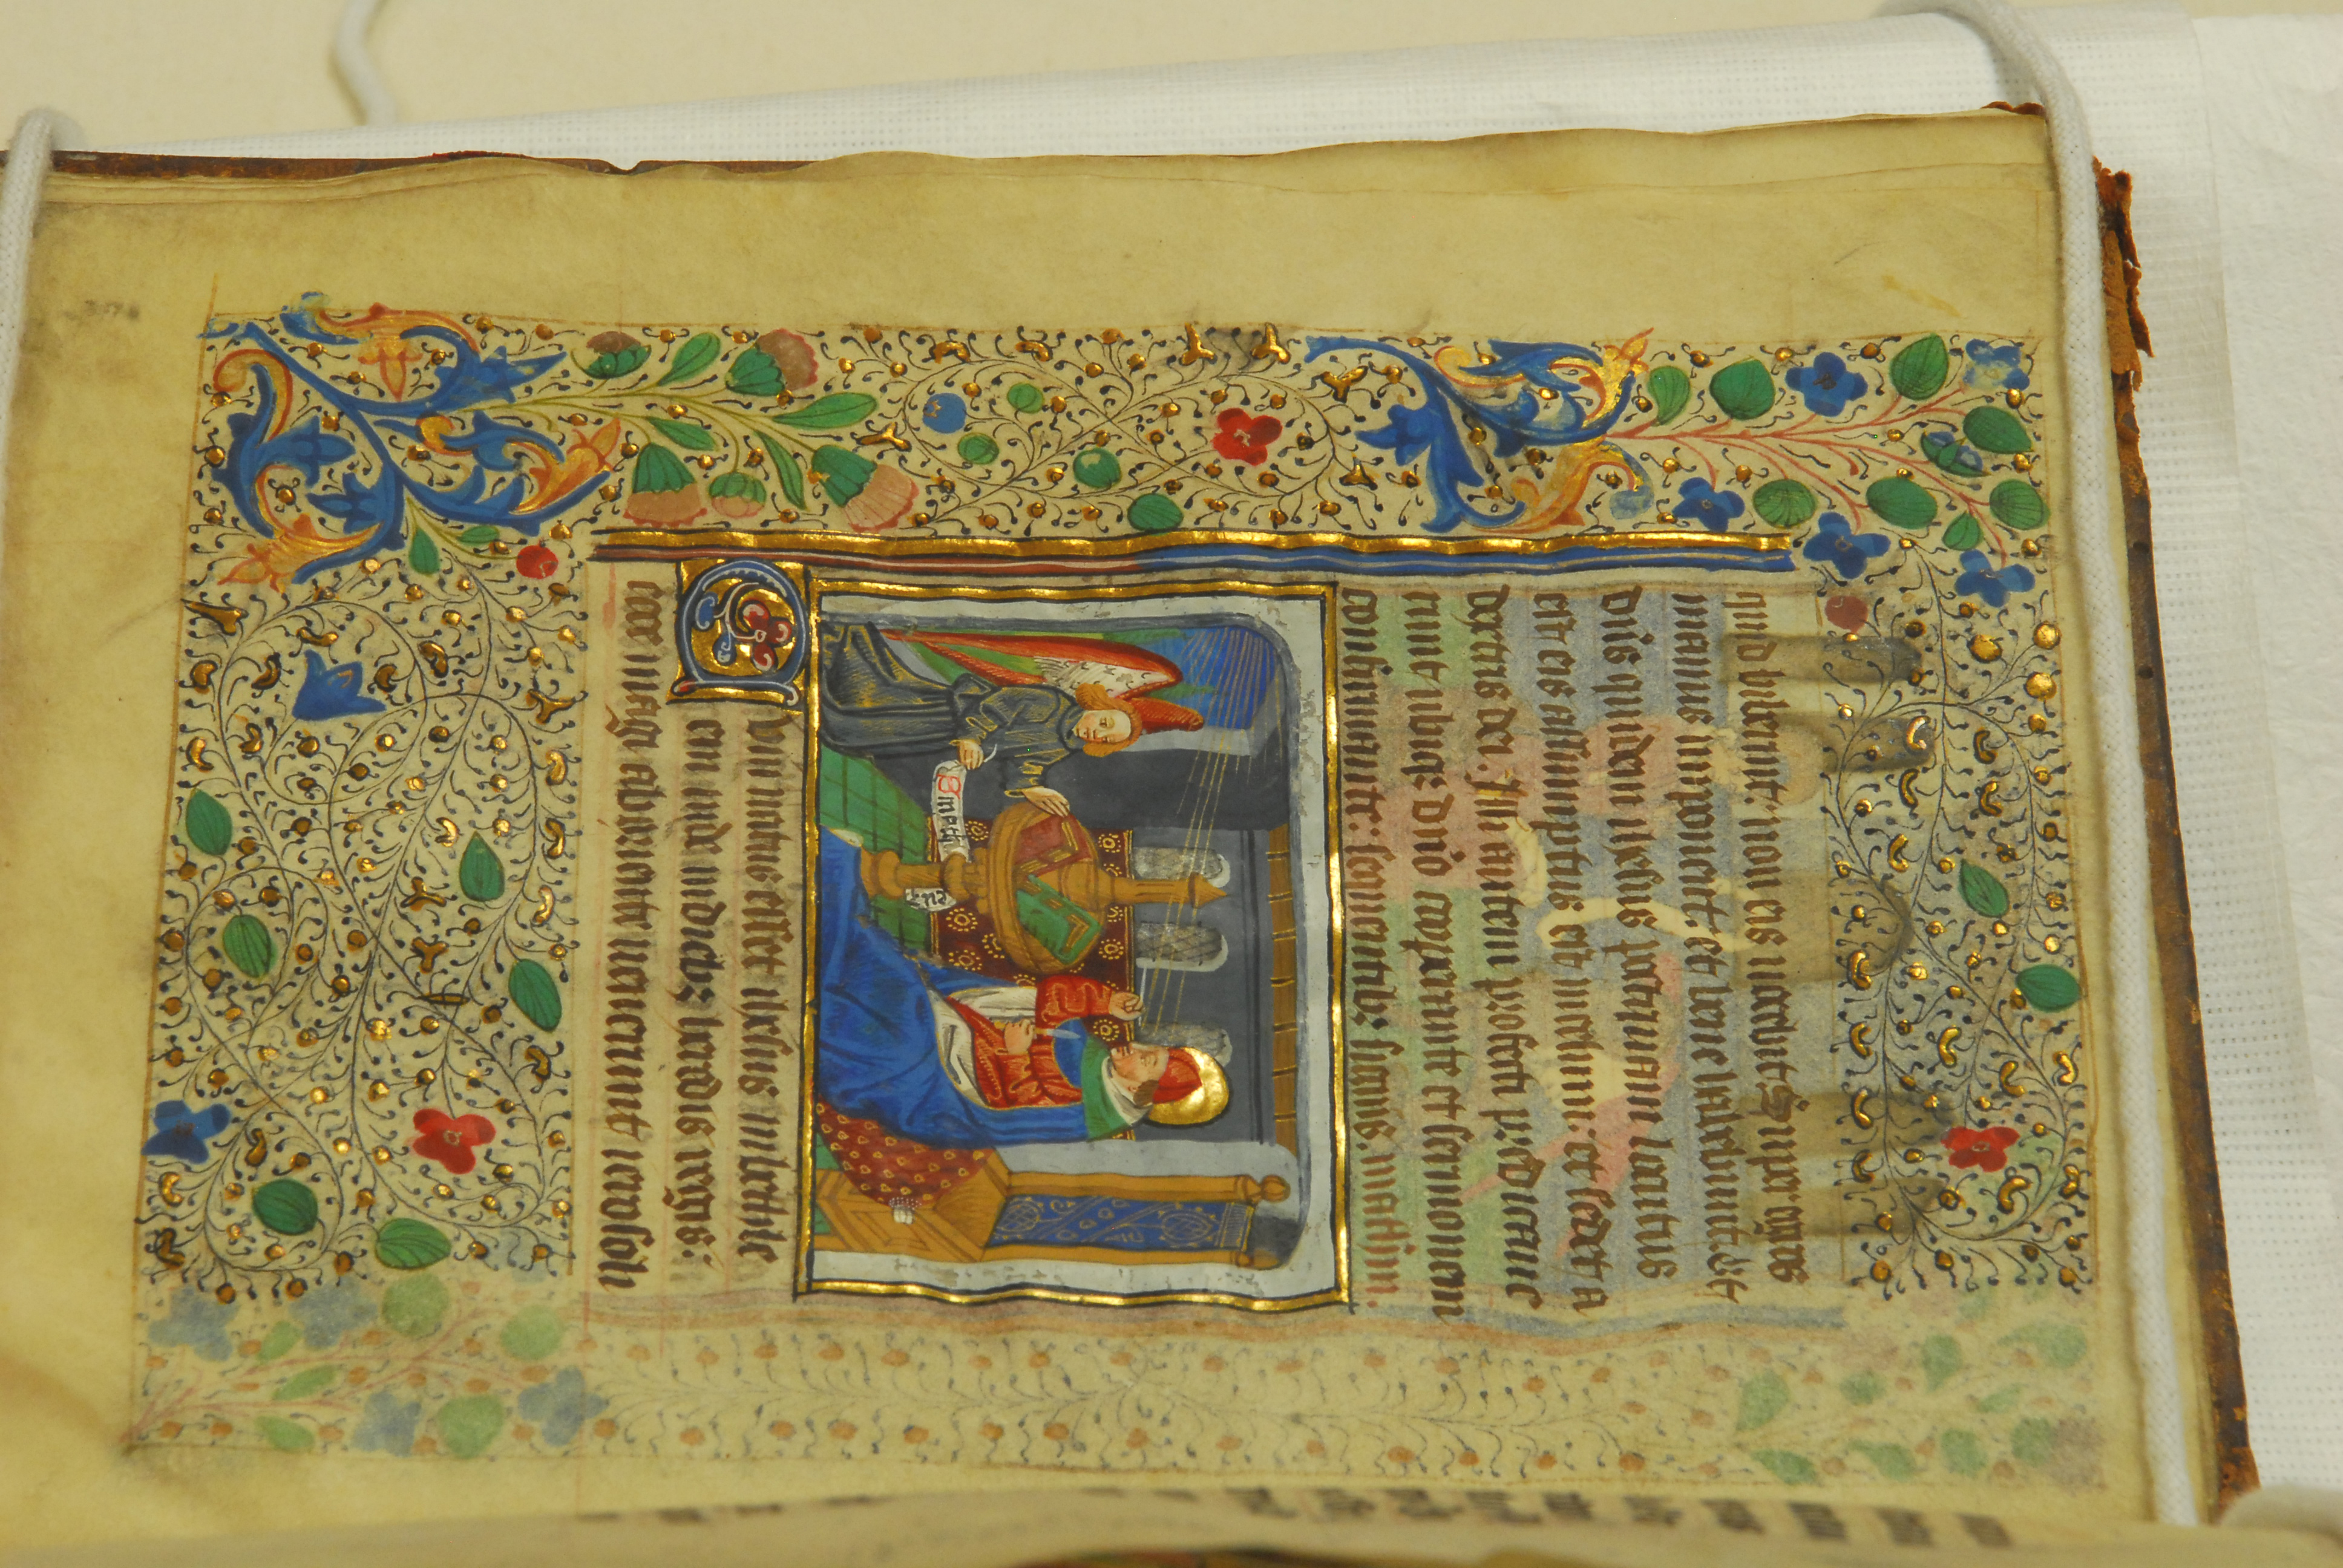 quid biberint: non eis nocebit Super egros
manus imponent: et bene habebunt. Et
dn̄s quidem ihesus postquam locutus
est eis assumptus est in celum: et sedet a
dextris dei. Illi autem profecti predicaue
runt ubiqꝫ dn̄o cooperante et sermonem
confirmante: sequentibꝫ signis. mathm.
Cum natus esset ihesus in bethlee
em iude in diebꝫ herodis regis:
ecce magi ab oriente uenerunt ierosoli